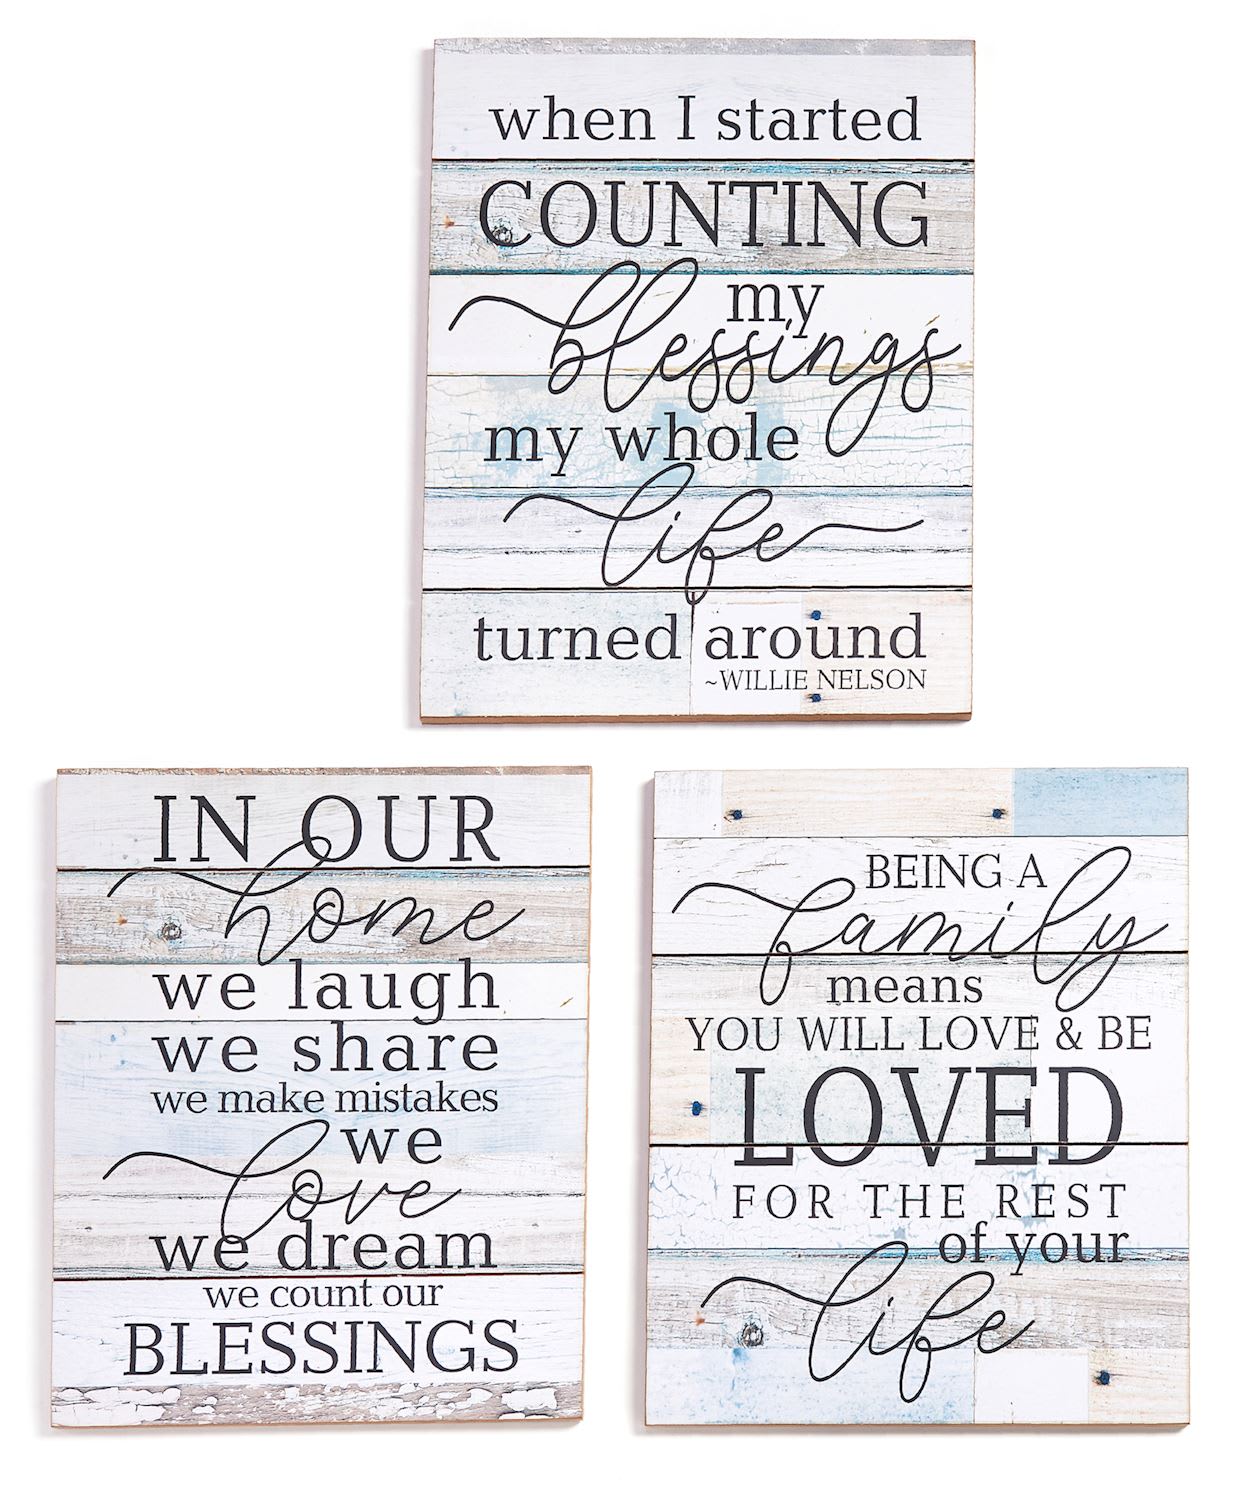 when I started
COUNTING
my
blessings
my whole
life
turned around
~WILLIE NELSON
IN OUR
home
we laugh
we share
we make mistakes
we
love
we dream
we count our
BLESSINGS
BEING A
family
means
YOU WILL LOVE & BE
LOVED
FOR THE REST
of your
life